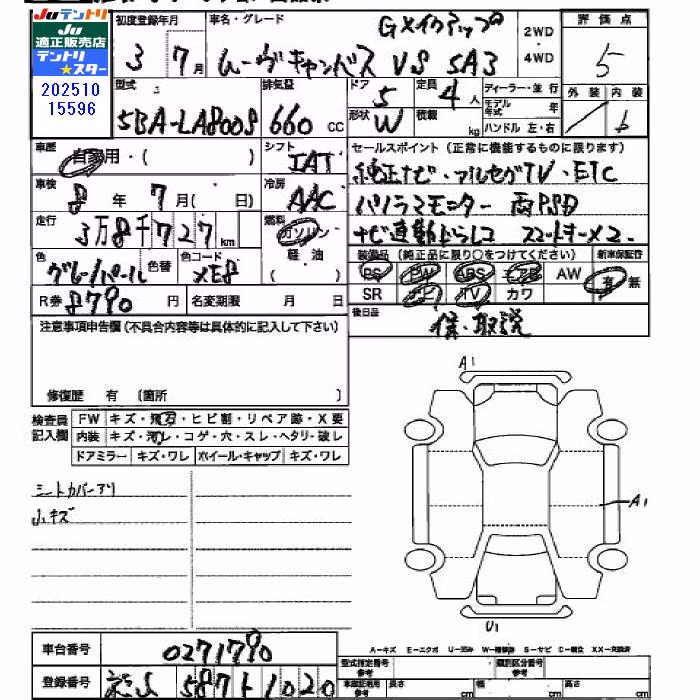 JU テントリ
JU
適正販売店
テントリ
★スター
202510
15596
初度登録年月
3 年 7 月
車名・グレード
Gメイクアップ
ムーヴキャンバス VS SA3
2WD
4WD
評価点
5
外装 内装
b
型式
5BA-LA800S
排気量
660 CC
ドア
5
定員
4人
形状
W
積載
kg
ディーラー・並行
モデル年式 年
ハンドル 左・右
車歴
自家用・( )
シフト
IAT
車検
8 年 7 月( 日)
冷房
AAC
走行
3万8千727 km
燃料
ガソリン
軽油
( )
色
グレーパール
色替
色コード
XE8
R券 8790 円
名変期限 月 日
セールスポイント(正常に機能するものに限ります)
純正ナビ・フルセグTV・ETC
パノラマモニター 両PSD
ナビ連動ドラレコ スマートキー×2
装備品(純正品に限り○をつけてください)
新車保証書
PS PW ABS エアB AW
SR ナビ TV カワ
有 無
後日品
保・取説
注意事項申告欄(不具合内容等は具体的に記入して下さい)
修復歴 有 〔箇所 〕
検査員
記入欄
FW キズ・飛石・ヒビ割・リペア跡・X要
内装 キズ・汚レ・コゲ・穴・スレ・ヘタリ・破レ
ドアミラー キズ・ワレ ホイール・キャップ キズ・ワレ
シートカバーアリ
小キズ
A1
A1
U1
A-キズ E-エクボ U-凹み W-補修跡 S-サビ C-腐立 XX-交換済
車台番号 0271790
登録番号 587 1020
型式指定番号
参考
類別区分番号
参考
車庫証明用
参考
長さ cm 幅 cm 高さ cm